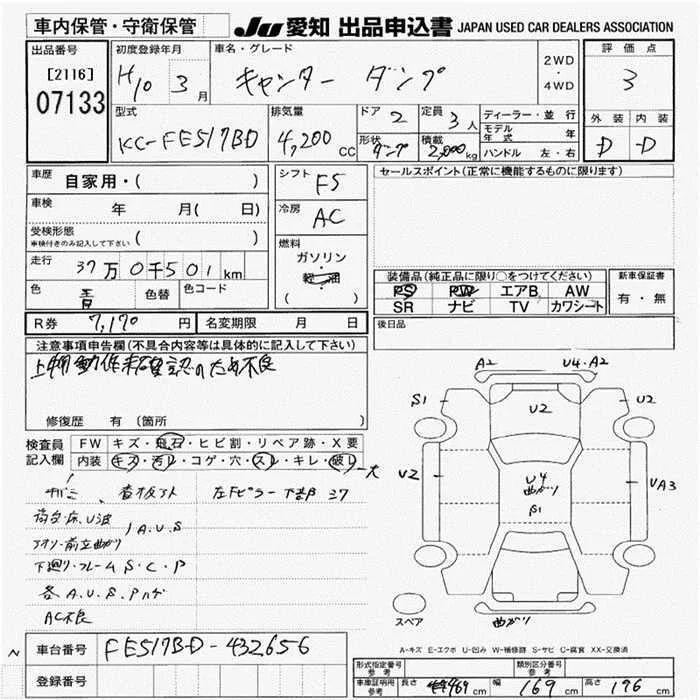 車内保管・守衛保管
JU 愛知 出品申込書 JAPAN USED CAR DEALERS ASSOCIATION
出品番号
[2116]
07133
初度登録年月
H10 3月
車名・グレード
キャンター ダンプ
2WD
・
4WD
評価点
3
外装 内装
D D
型式
KC-FE517BD
排気量
4,200 CC
ドア 2
形状 ダンプ
定員 3人
積載 2,000kg
ディーラー・並行
モデル年式 年
ハンドル 左・右
車歴 自家用・( )
車検 年 月( 日)
受検形態
車検付きのみ記入して下さい ( )
走行 37万0千501km
色 青 色替 色コード
シフト F5
冷房 AC
燃料
ガソリン
軽油
( )
セールスポイント(正常に機能するものに限ります)
装備品(純正品に限り○をつけてください)
PS PW エアB AW
SR ナビ TV カワシート
新車保証書
有・無
R券 7,170円 名変期限 月 日
後日品
注意事項申告欄(不具合内容等は具体的に記入して下さい)
上物動作未確認のため不良
修復歴 有 (箇所 )
検査員記入欄
FW キズ・飛石・ヒビ割・リペア跡・X要
内装 キズ・汚レ・コゲ・穴・スレ・キレ・破レ 大
サバミ 看板アト 左Fピラー下部
荷台・床、U波
A.U.S
アオリ・前立曲がり
下廻り・フレーム S・C・P
各A.U.S.Pハゲ
AC不良
A2 U4・A2
S1 U2 U2
U2 U4 曲がり S1 UA3
曲がり
スペア
A-キズ E-エクボ U-凹み W-補修跡 S-サビ C-腐食 XX-交換済
N
車台番号 FE517BD-432656
登録番号
形式指定番号 参考
類別区分番号 参考
車庫証明用 参考 長さ 469cm 幅 169cm 高さ 196cm